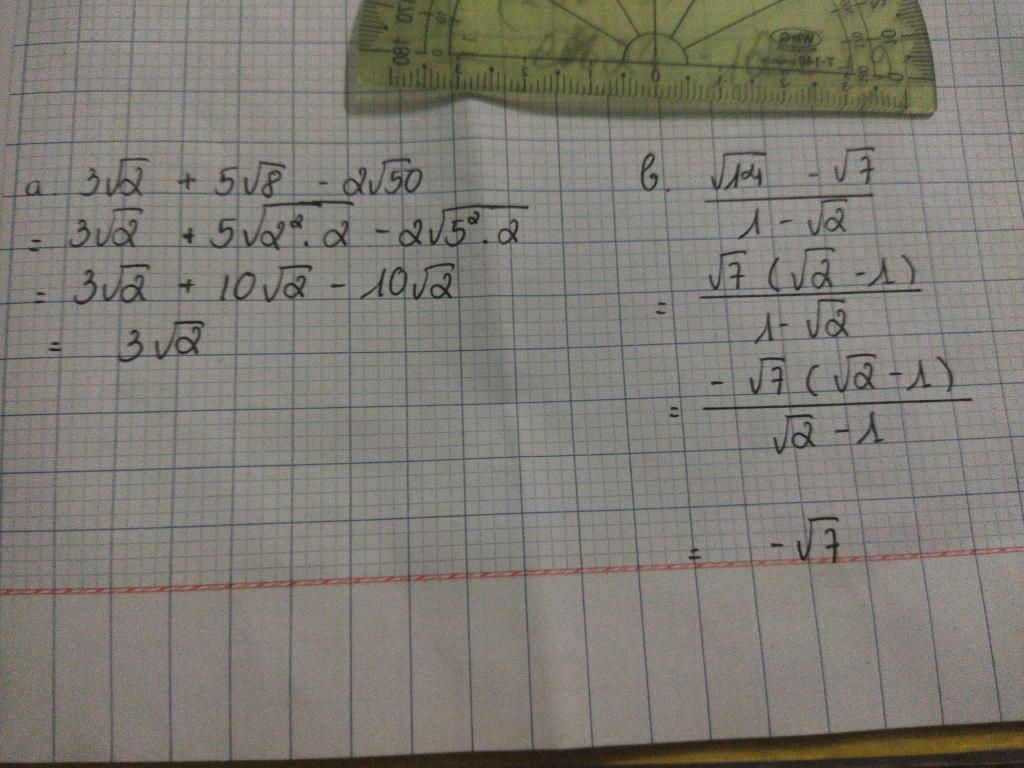 a. 3√2 + 5√8 - 2√50
= 3√2 + 5√2².2 - 2√5².2
= 3√2 + 10√2 - 10√2
= 3√2
b. √14 - √7
1 - √2
= √7 (√2 - 1)
1 - √2
= - √7 (√2 - 1)
√2 - 1
= -√7